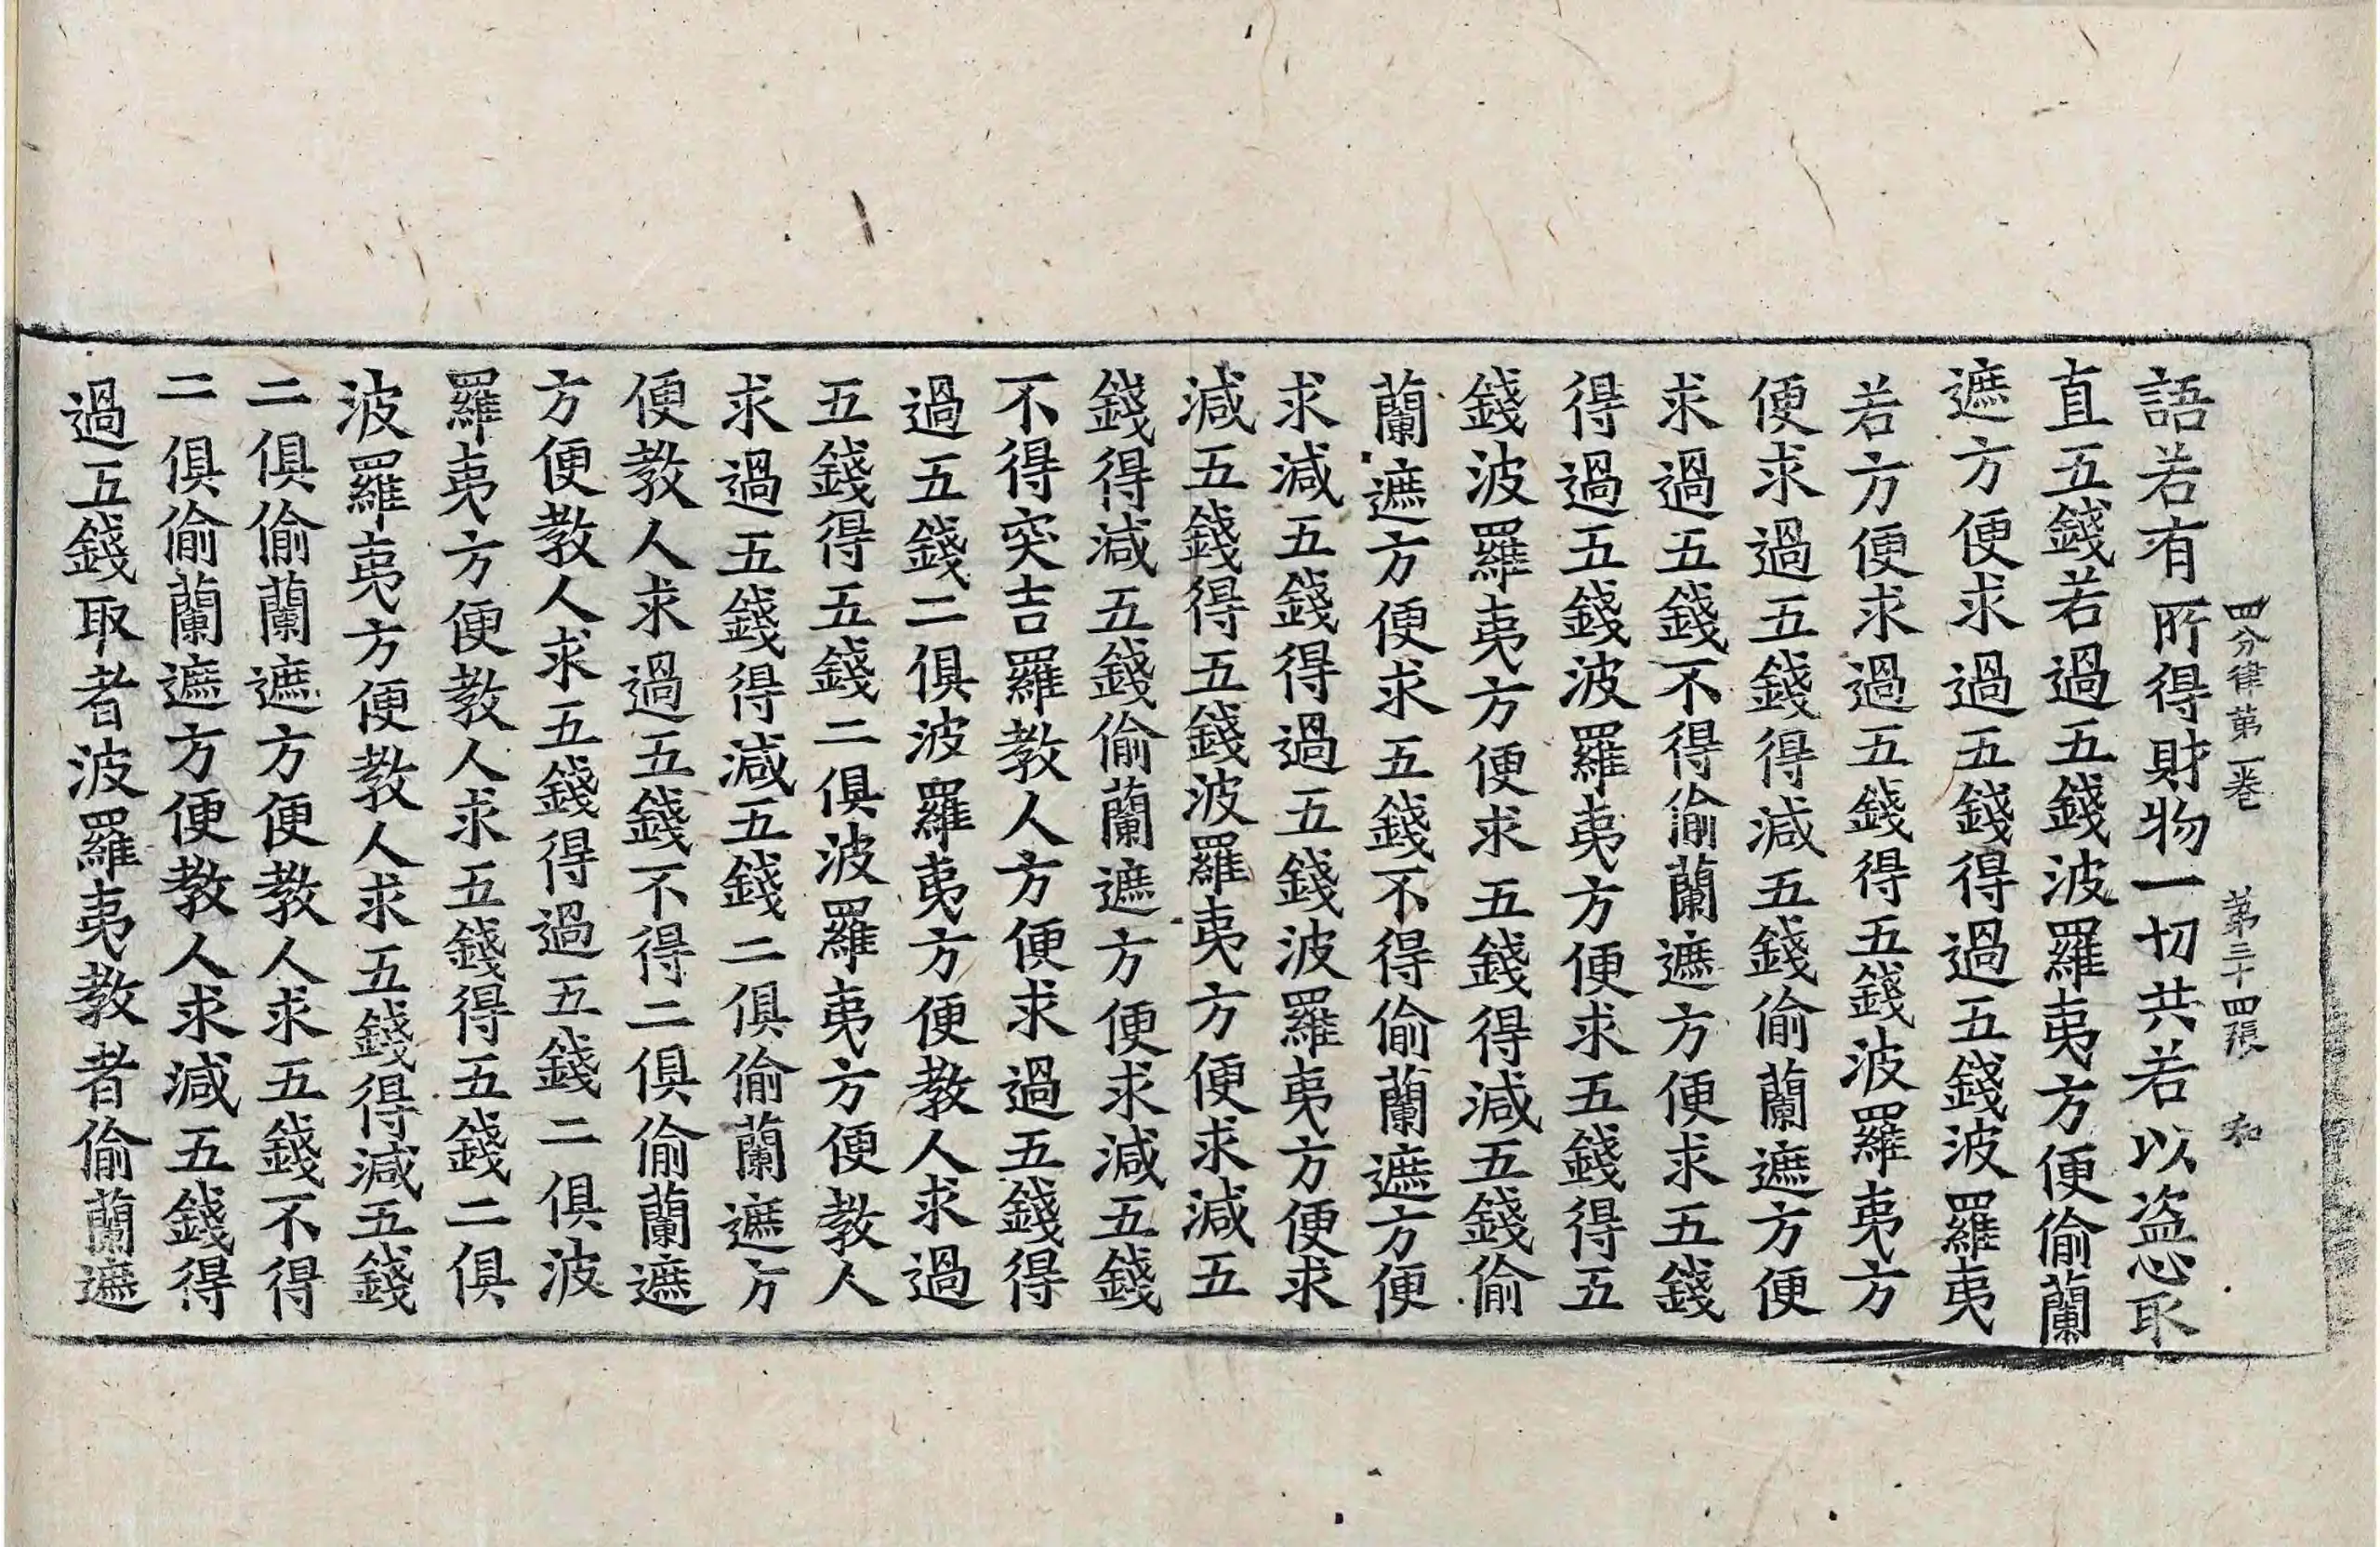 四分律第一卷 第三十四張 和
語若有所得財物一切共若以盗心取
直五錢若過五錢波羅夷方便偷蘭
遮方便求過五錢得過五錢波羅夷
若方便求過五錢得五錢波羅夷方
便求過五錢得減五錢偷蘭遮方便
求過五錢不得偷蘭遮方便求五錢
得過五錢波羅夷方便求五錢得五
錢波羅夷方便求五錢得減五錢偷
蘭遮方便求五錢不得偷蘭遮方便
求減五錢得過五錢波羅夷方便求
減五錢得五錢波羅夷方便求減五
錢得減五錢偷蘭遮方便求減五錢
不得突吉羅教人方便求過五錢得
過五錢二俱波羅夷方便教人求過
五錢得五錢二俱波羅夷方便教人
求過五錢得減五錢二俱偷蘭遮方
便教人求過五錢不得二俱偷蘭遮
方便教人求五錢得過五錢二俱波
羅夷方便教人求五錢得五錢二俱
波羅夷方便教人求五錢得減五錢
二俱偷蘭遮方便教人求五錢不得
二俱偷蘭遮方便教人求減五錢得
過五錢取者波羅夷教者偷蘭遮